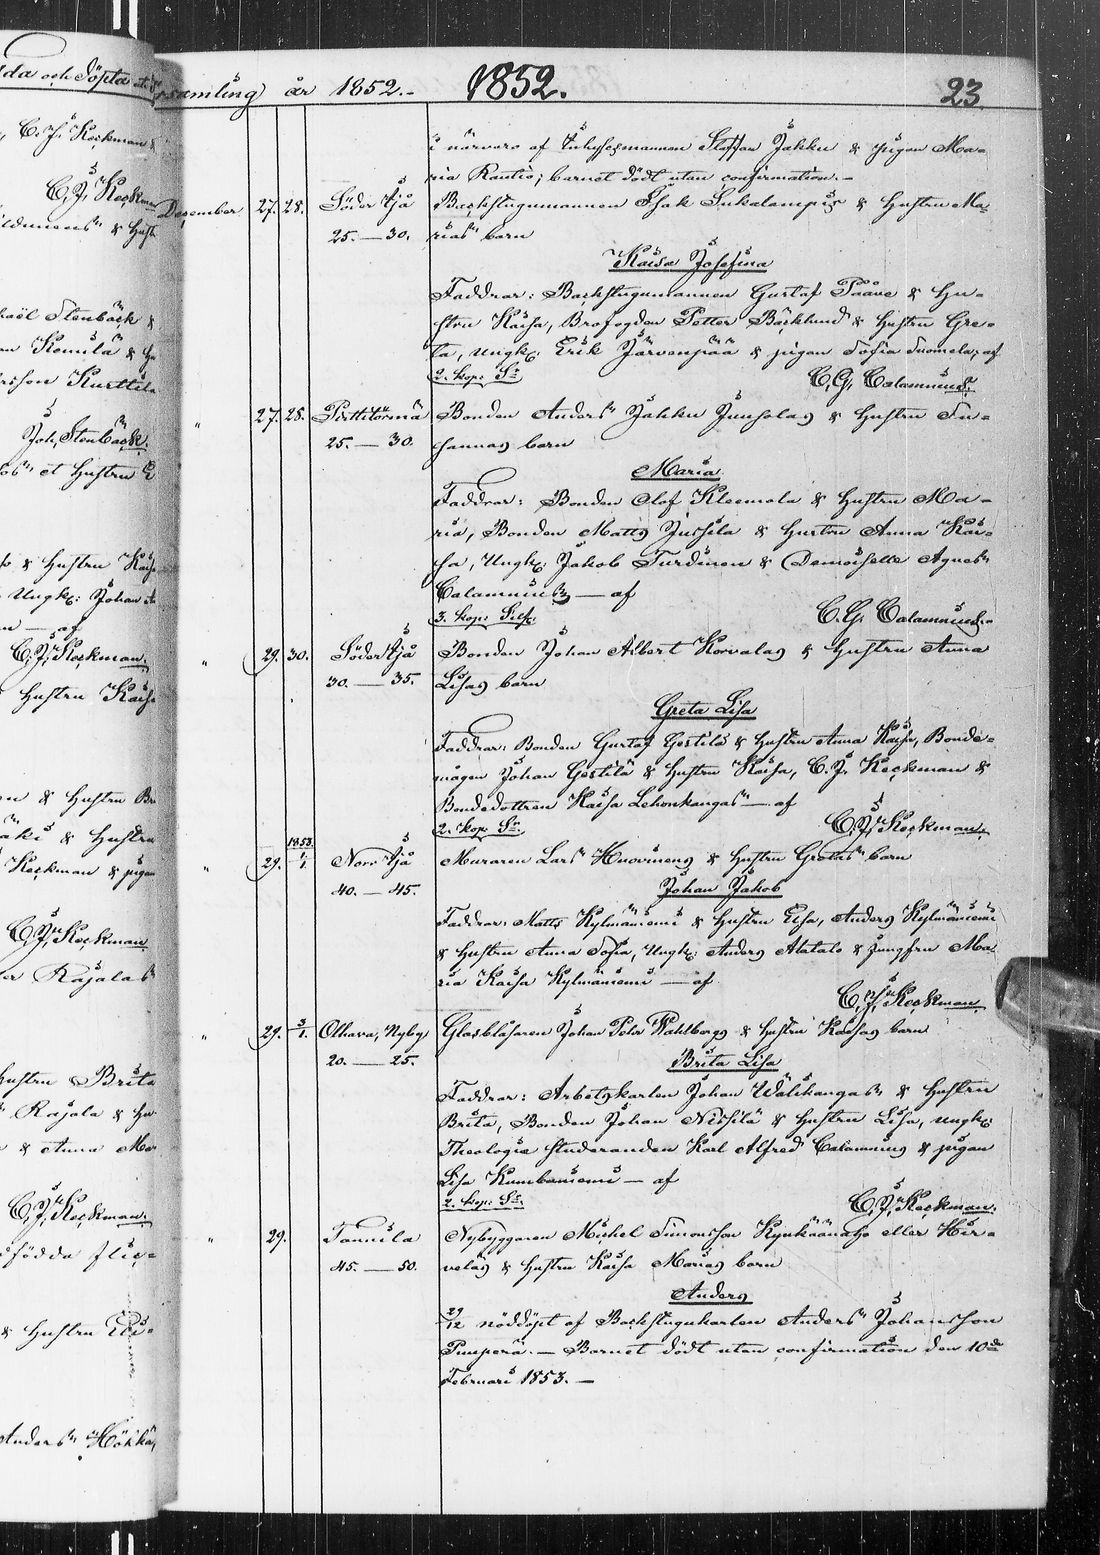 da och Döpta
rsamling år 1852.- 1852. 23
C. J. Keckman
C. J. Keckman
& Hust
Stenbäck &
Komulä & Hu
Kurttila
Joh. Stenbäck.
et Hustru
& Hustru Kaisa
Ungk: Johan
af
C. J. Keckman.
Hustru Kaisa
& Hustru Br
& Hustru
Keckman & pigan
C. J. Keckman
Rajalas
Hustru Brita
Rajala & Hu
& Anna Ma
C. J. Keckman.
födda flic-
& Hustru Eli-
Anders Hökkä,
i närvaro af Staffan Jakku & pigan Ma-
ria Rautio; barnet dödt utan confirmation.-
December 27. 28. Söder Ijå Backstugumannen Isak & Hustru Ma-
25. — 30. rias barn
Kaisa Josefina
Faddrar: Backstugumannen Gustaf Paave & Hu-
stru Kaisa, Brofogden Petter Bäcklund & Hustru Gre-
ta, Ungk: Erik Järvenpää & pigan Sofia Tuomela; af
2. kop: Sr C. G. Calamnius.
" 27. 28. Bonden Anders Jakku Juusolas & Hustru Su-
25. — 30. sannas barn
Maria.
Faddrar: Bonden Olof Kleemola & Hustru Ma-
ria, Bonden Matts Jussila & Hustru Anna Kai-
sa, Ungk: Jakob Turdinen & Demoiselle Agnes
Calamnius — af
3. kop: Silf. C. G. Calamnius.
" 29. 30. Söder Ijå Bonden Johan Albert Korvalas & Hustru Anna
30. — 35. Lisas barn
Greta Lisa
Faddrar: Bonden Gustaf Gestilä & Hustru Anna Kaisa, Bonde-
mågen Johan Gestilä & Hustru Kaisa, C. J. Keckman &
Bondedottren Kaisa Lehonkangas — af
2. kop: Sr C. J. Keckman.
1853.
" 29. 1/1 Norr Ijå Muraren Lars Huovinens & Hustru Gretas barn
40. — 45. Johan Jakob
Faddrar: Matts Kylmäniemi & Hustru Elsa, Anders Kylmäniemi
& Hustru Anna Sofia, Ungk: Anders Alatalo & Jungfru Ma-
ria Kaisa Kylmäniemi — af
C. J. Keckman.
" 29. 3/1. Olhava, Nyby Glasblåsaren Johan Petr Wahlbergs & Hustru Kaisas barn
20. — 25. Brita Lisa
Faddrar: Arbetskarlen Johan Wälikangas & Hustru
Brita, Bonden Johan Nissilä & Hustru Lisa, Ungk:
Theologiæ studeranden Karl Alfred Calamnius & pigan
Lisa — af
2. kop: Sr. C. J. Keckman.
" 29. Tannila Nybyggaren Michel Simonsson Kynkäänaho eller Hir-
45. — 50. veläs & Hustru Kaisa Marias barn
Anders
29/12 nöddöpt af Backstugukarlen Anders Johansson
Pumperä. — Barnet dödt utan confirmation den 10de
Februari 1853. —